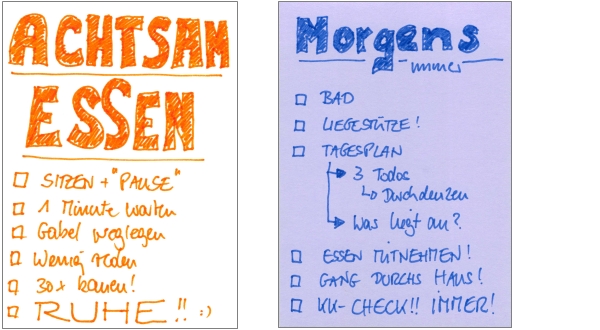 ACHTSAM
ESSEN
SITZEN + "PAUSE"
1 Minute warten
Gabel weglegen
Wenig reden
30x kauen!
RUHE!! :)
Morgens
- immer
BAD
LIEGESTÜTZE!
TAGESPLAN
3 Todos
Durchdenken
Was liegt an?
ESSEN MITNEHMEN!
GANG DURCHS HAUS!
KK-CHECK!! IMMER!